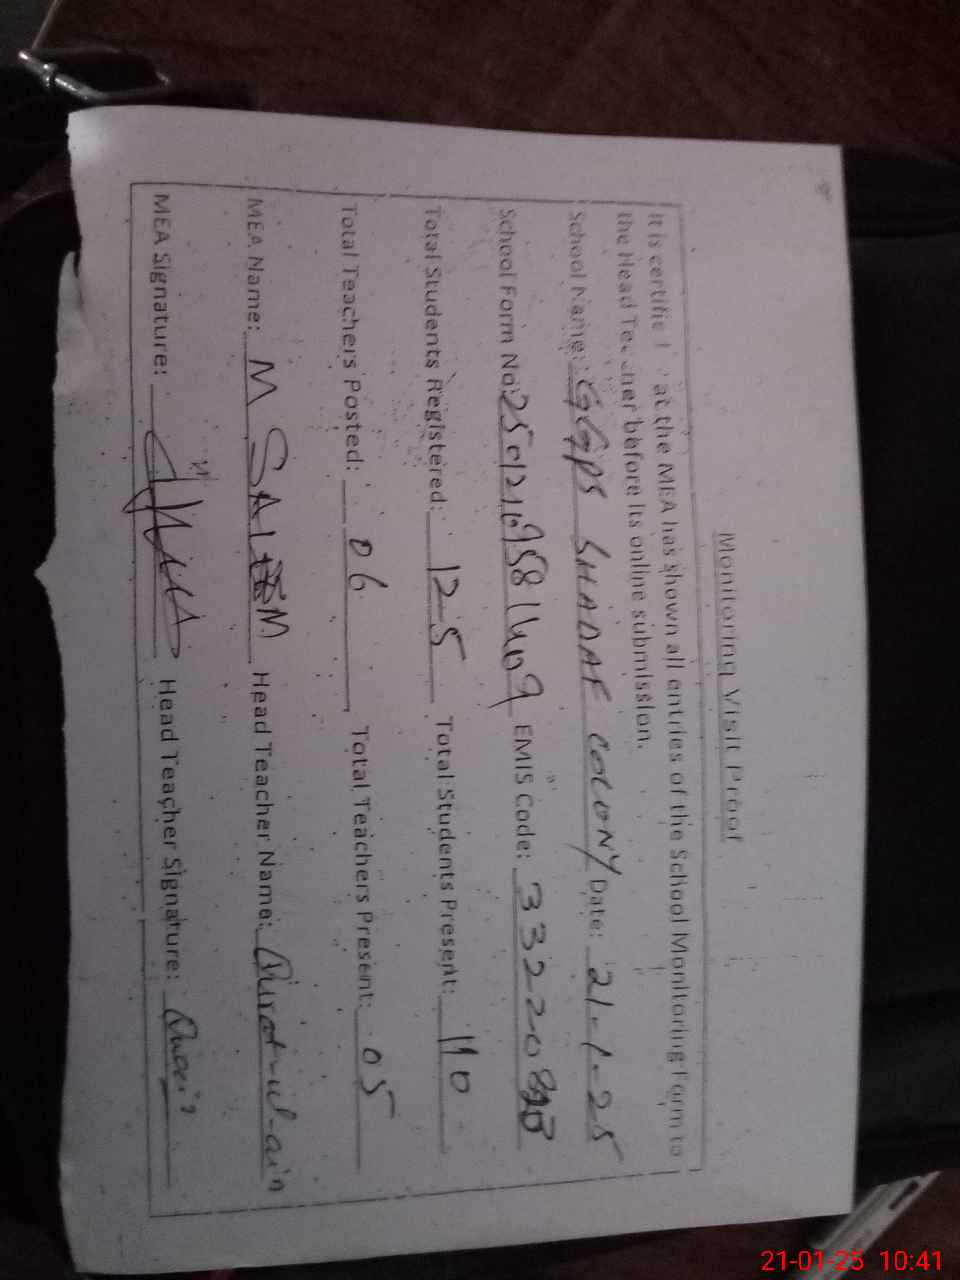 Monitoring Visit Proof
It is certified that the MEA has shown all entries of the School Monitoring Form to
the Head Teacher before its online submission.
School Name: GGPS SHADAF COLONY Date: 21-1-25
School Form No: EMIS Code:
Total Students Registered: 125 Total Students Present: 110
Total Teachers Posted: 06 Total Teachers Present: 05
MEA Name: M SALEEM Head Teacher Name: Qurat-ul-ain
MEA Signature: Head Teacher Signature:
21-01-25 10:41